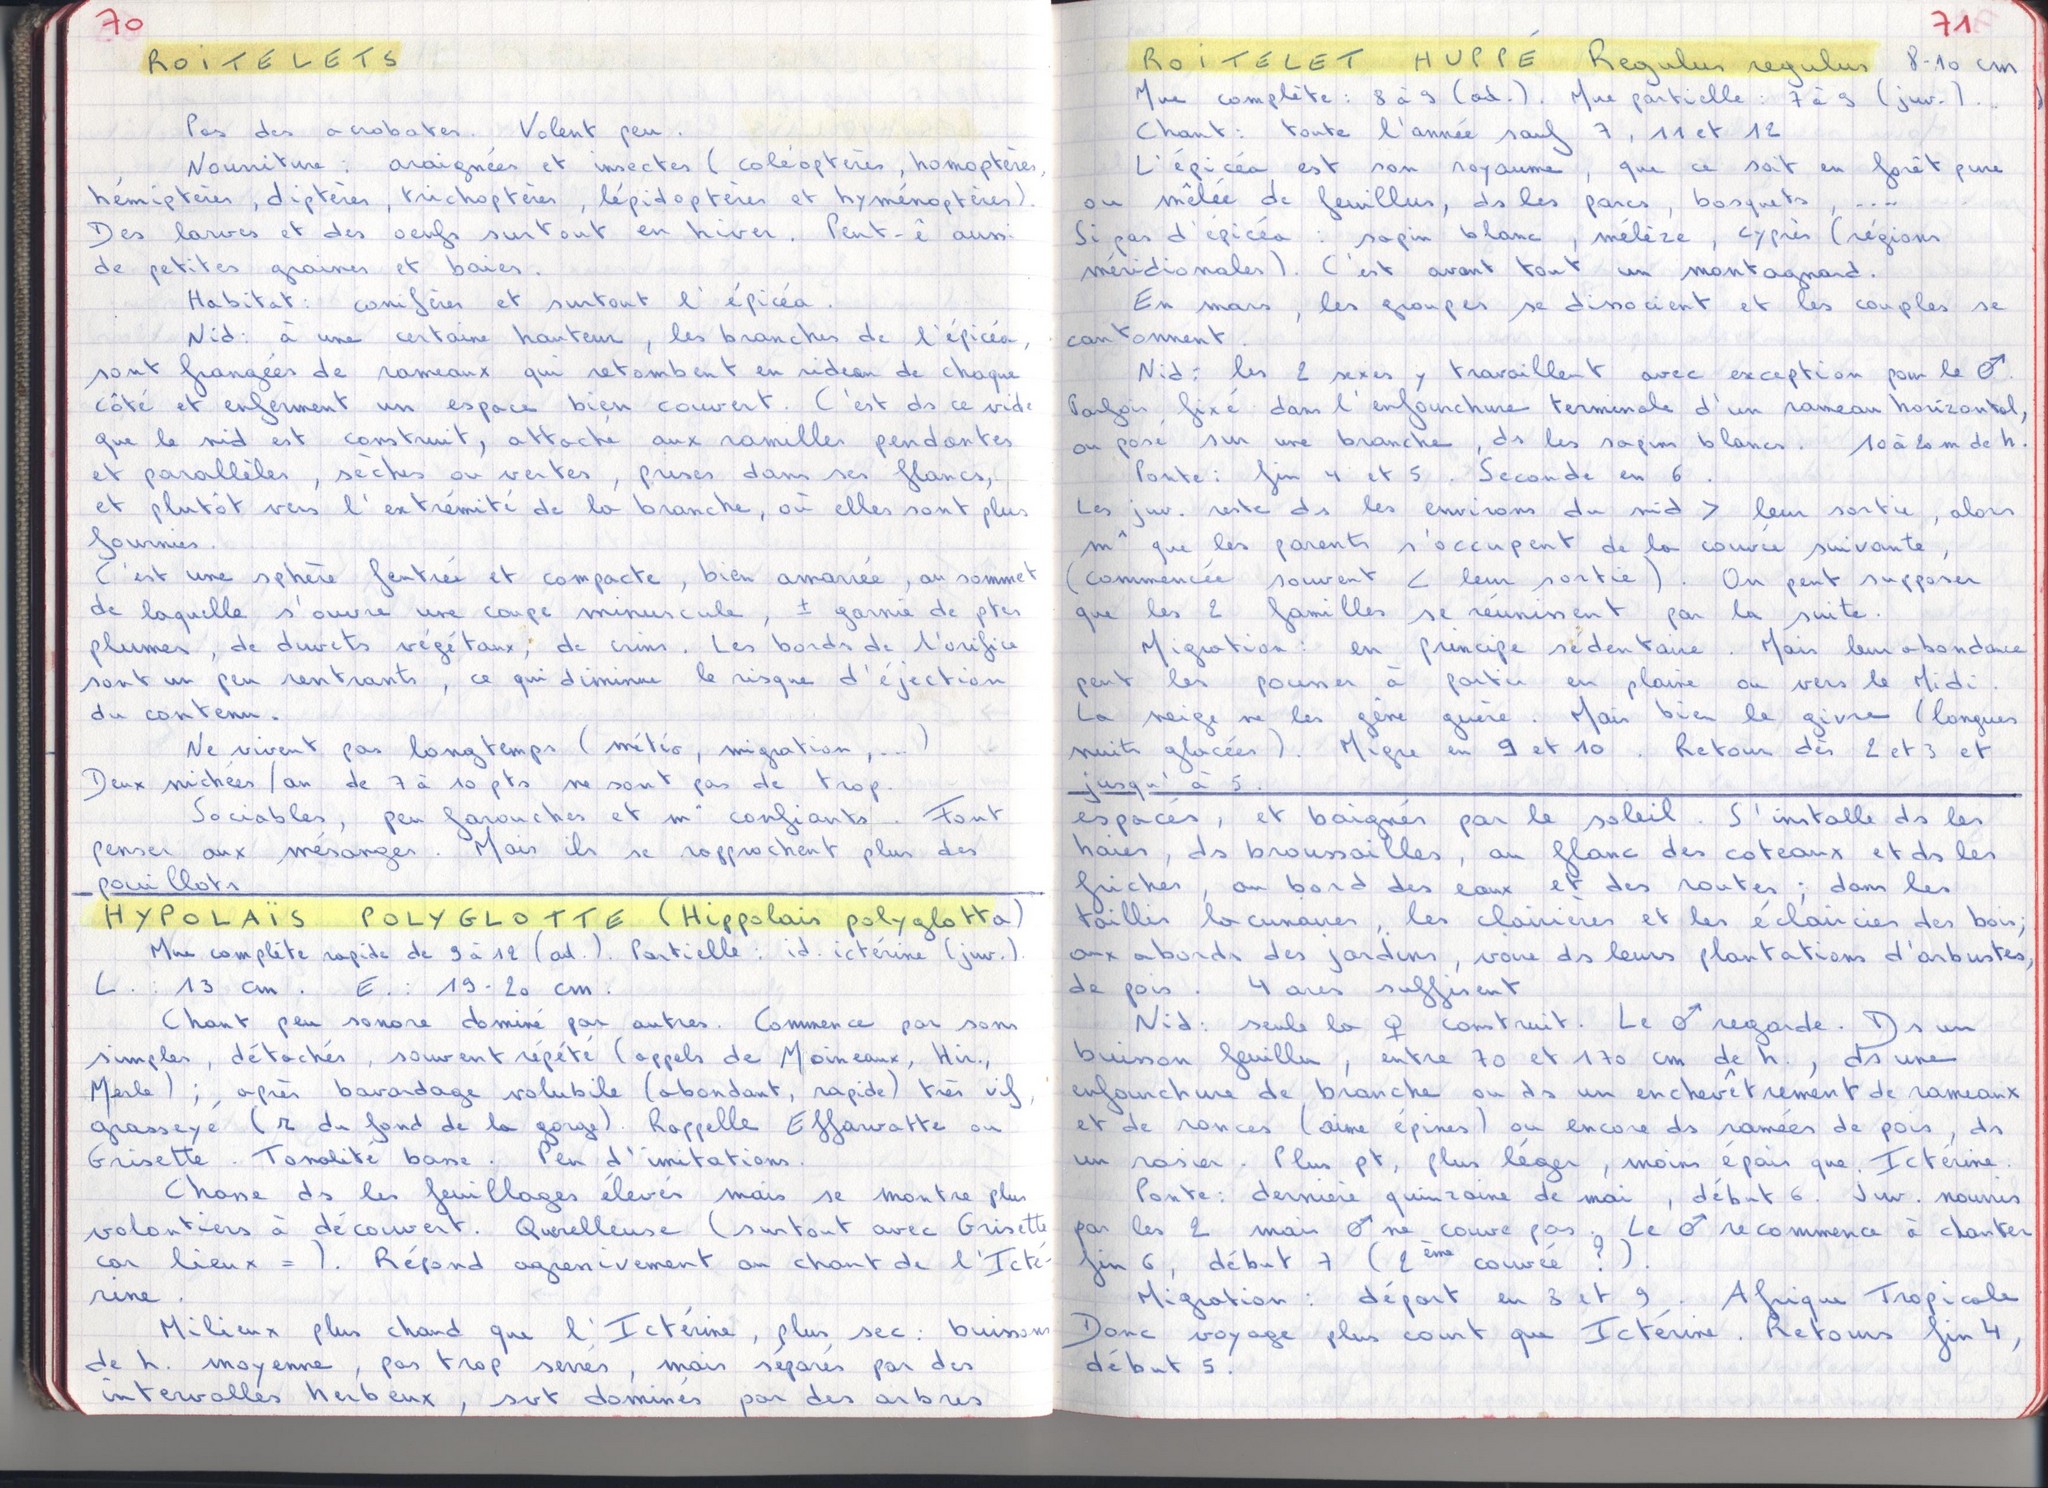 70
ROITELETS
Pas des acrobates. Volent peu.
Nourriture : araignées et insectes (coléoptères, homoptères,
hémiptères, diptères, trichoptères, lépidoptères et hyménoptères).
Des larves et des oeufs surtout en hiver. Peut-ê aussi
de petites graines et baies.
Habitat : conifères et surtout l'épicéa.
Nid : à une certaine hauteur, les branches de l'épicéa,
sont frangées de rameaux qui retombent en rideau de chaque
côté et enferment un espace bien couvert. C'est ds ce vide
que le nid est construit, attaché aux ramilles pendantes
et parallèles, sèches ou vertes, prises dans ses flancs,
et plutôt vers l'extrémité de la branche, où elles sont plus
fournies.
C'est une sphère feutrée et compacte, bien amarrée, au sommet
de laquelle s'ouvre une coupe minuscule, ± garnie de ptes
plumes, de duvets végétaux, de crins. Les bords de l'orifice
sont un peu rentrants, ce qui diminue le risque d'éjection
du contenu.
Ne vivent pas longtemps (météo, migration, ...)
Deux nichées/an de 7 à 10 pts ne sont pas de trop.
Sociables, peu farouches et m^ confiants. Font
penser aux mésanges. Mais ils se rapprochent plus des
pouillots
HYPOLAÏS POLYGLOTTE (Hippolais polyglotta)
Mue complète rapide de 9 à 12 (ad.). Partielle : id. ictérine (juv.).
L. : 13 cm. E. : 19-20 cm.
Chant peu sonore dominé par autres. Commence par sons
simples, détachés, souvent répété (appels de Moineaux, Hir.,
Merle) ; après bavardage volubile (abondant, rapide) très vif,
grasseyé (r du fond de la gorge). Rappelle Effarvatte ou
Grisette. Tonalité basse. Peu d'imitations.
Chasse ds les feuillages élevés mais se montre plus
volontiers à découvert. Querelleuse (surtout avec Grisette
car lieux = ). Répond agressivement au chant de l'Icté-
rine.
Milieux plus chaud que l'Ictérine, plus sec : buissons
de h. moyenne, pas trop serrés, mais séparés par des
intervalles herbeux, svt dominés par des arbres
71
ROITELET HUPPÉ Regulus regulus 8-10 cm
Mue complète : 8 à 9 (ad.). Mue partielle : 7 à 9 (juv.)...
Chant : toute l'année sauf 7, 11 et 12
L'épicéa est son royaume, que ce soit en forêt pure
ou mêlée de feuillus, ds les parcs, bosquets, ....
Si pas d'épicéa : sapin blanc, mélèze, cyprès (régions
méridionales). C'est avant tout un montagnard.
En mars, les groupes se dissocient et les couples se
cantonnent.
Nid : les 2 sexes y travaillent avec exception pour le ♂.
Parfois fixé dans l'enfourchure terminale d'un rameau horizontal,
ou posé sur une branche, ds les sapins blancs. 10 à 20 m de h.
Ponte : fin 4 et 5. Seconde en 6.
Les juv. reste ds les environs du nid > leur sortie, alors
m^ que les parents s'occupent de la couvée suivante,
(commencée souvent < leur sortie). On peut supposer
que les 2 familles se réunissent par la suite.
Migration : en principe sédentaire. Mais leur abondance
peut les pousser à partir en plaine ou vers le Midi.
La neige ne les gêne guère. Mais bien le givre (longues
nuits glacées). Migre en 9 et 10. Retour dès 2 et 3 et
jusqu'à 5.
espacés, et baignés par le soleil. S'installe ds les
haies, ds broussailles, au flanc des coteaux et ds les
friches, au bord des eaux et des routes ; dans les
taillis lacunaires, les clairières et les éclaircies des bois;
aux abords des jardins, voire ds leurs plantations d'arbustes,
de pois. 4 ares suffisent
Nid : seule la ♀ construit. Le ♂ regarde. Ds un
buisson feuillu, entre 70 et 170 cm de h., ds une
enfourchure de branche ou ds un enchevêtrement de rameaux
et de ronces (aime épines) ou encore ds ramées de pois, ds
un rosier. Plus pt, plus léger, moins épais que Ictérine.
Ponte : dernière quinzaine de mai, début 6. Juv. nourris
par les 2 mais ♂ ne couve pas. Le ♂ recommence à chanter
fin 6, début 7 (2ème couvée ?).
Migration : départ en 8 et 9. Afrique Tropicale
Donc voyage plus court que Ictérine. Retours fin 4,
début 5.